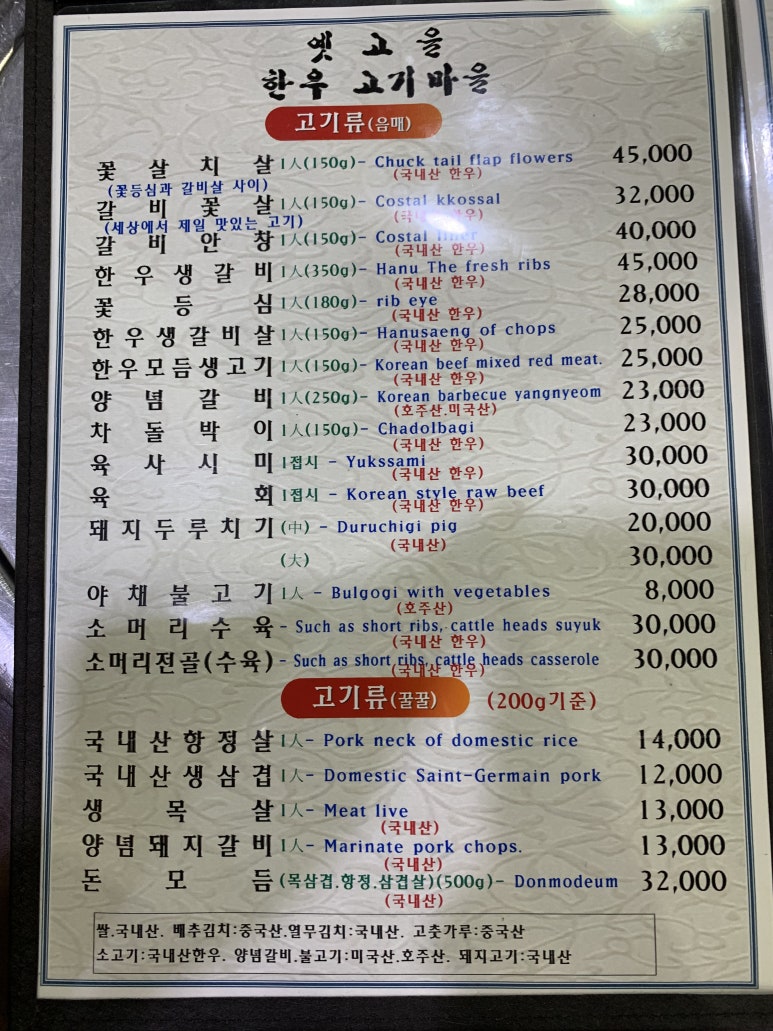 옛고을
한우 고기마을
고기류(음매)
꽃살치살 1人(150g)- Chuck tail flap flowers 45,000
(국내산 한우)
(꽃등심과 갈비살 사이)
갈비꽃살 1人(150g)- Costal kkossal 32,000
(국내산 한우)
(세상에서 제일 맛있는 고기)
갈비안창 1人(150g)- Costal liner 40,000
(국내산 한우)
한우생갈비 1人(350g)- Hanu The fresh ribs 45,000
(국내산 한우)
꽃등심 1人(180g)- rib eye 28,000
(국내산 한우)
한우생갈비살 1人(150g)- Hanusaeng of chops 25,000
(국내산 한우)
한우모듬생고기 1人(150g)- Korean beef mixed red meat. 25,000
(국내산 한우)
양념갈비 1人(250g)- Korean barbecue yangnyeom 23,000
(호주산.미국산)
차돌박이 1人(150g)- Chadolbagi 23,000
(국내산 한우)
육사시미 1접시 - Yukssami 30,000
(국내산 한우)
육회 1접시 - Korean style raw beef 30,000
(국내산 한우)
돼지두루치기 (中) - Duruchigi pig 20,000
(국내산)
(大) 30,000
야채불고기 1人 - Bulgogi with vegetables 8,000
(호주산)
소머리수육 - Such as short ribs, cattle heads suyuk 30,000
(국내산 한우)
소머리전골(수육) - Such as short ribs, cattle heads casserole 30,000
(국내산 한우)
고기류(꿀꿀) (200g기준)
국내산항정살 1人- Pork neck of domestic rice 14,000
국내산생삼겹 1人- Domestic Saint-Germain pork 12,000
생목살 1人- Meat live 13,000
(국내산)
양념돼지갈비 1人- Marinate pork chops. 13,000
(국내산)
돈모듬 (목삼겹.항정.삼겹살)(500g)- Donmodeum 32,000
(국내산)
쌀.국내산. 배추김치:중국산.열무김치:국내산. 고춧가루:중국산
소고기:국내산한우. 양념갈비.불고기:미국산.호주산. 돼지고기:국내산